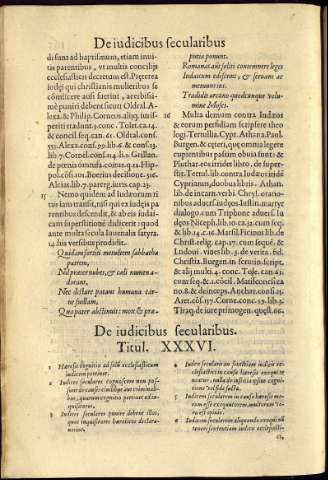 De iudicibus secularibus
di sunt ad baptismum, etiam inui-
tis parentibus, vt multis concilijs
ecclesiasticis decretum est. Pręterea
iudęi qui christianis mulieribus se
cōmiscere ausi fuerint, acerbissi-
mè puniri debent sicut Oldral. A-
lexa. & Philip. Corneus. alijq. iuris-
periti tradunt. 4. conc. Tolet. ca. 14.
& concil. seq. can. 61. Oldrad. cons.
Alexa. cons. 99. lib. 6. & cons.
lib. 7. Cornel. cons. lib. Grillan.
de poenis coitus. q. Hip-
pol. Boerius decisione. 316.
Alcias. lib. 7. parerg. iuris. cap. 23.
Nemo quidem ad Iudaorum ri-
tus iam transit, nisi qui ex iudęis pa-
rentibus descēdit, & ab eis iudai-
cam superstitionē didicerit: quod
ante multa secula Iuuenalis satyra.
14. his versibus prodidit.
Quidam sortiti metuētem sabbatha
patrem,
Nil pręter nubes, & cœli numen a-
dorant,
Nec distare putant humana car-
ne suillam,
Qua pater abstinuit: mox & prę-
putia ponunt.
Romanas aūt soliti contemnere leges
Iudaicum ediscunt, & seruant ac
metuunt ius.
Tradidit arcano quodcunque volu-
mine Moses.
16 Multa demum contra Iudæos
& eorum perfidiam scripsere theo-
logi. Tertullia. Cypr. Athana. Paul.
Burgen. & cęteri, quæ omnia legere
cupientibus passim obuia sunt; &
Plutharc. extat liber indo. de super-
stit. Tertul. lib. contra Iudæos itidē
Cyprianus, duobus libris. Athan.
lib. de incarn. verbi. Chrys. oratio-
nibus aduersus iudęos. Iustin. martyr
dialogo. cum Triphone aduers. Iu-
dęos Niceph. lib. 10. ca. 32. cum seq.
& lib. 14. c. 16. Marsil. Ficinus lib. de
Christ. relig. cap. 27. cum sequē. &
Ludoui. viues lib. 3. de verita. fid.
Christia. Burgen. in scrutin. script.
& alij multi. 4. conc. Tole. can. 63.
cum seq. & 2. cōcil. Matiscone. sica
no. 8. & deinceps. Anchar. cons. 25.
Aret. cōs. 157. Corne. cons. 59. lib. 3.
Tiraq. de iure primogen. quæst. 66.
De iudicibus secularibus.
Titul. XXXVI.
1 Hæresis cognitio ad solū ecclesiasticum
iudicem pertinet.
2 Iudices seculares cognoscere non pos-
sunt de causis ciuilibus aut criminali-
bus, quarum cognitio pertinet ad in-
quisitores.
3 Iudices seculares punire debent illos,
quos inquisitores hæreticos declara-
uerint.
4 Iudex secularis an sententiam iudicis ec-
clesiastici in causa hæresis exequi te-
neatur, nulla de iustitia ipsius cogni-
tione vel scientia sumpta.
5 Iudicem secularem in causa hæresis me-
rum esse exequutorem, multorum ve-
ra est opinio.
6 Iudicem secularem aliquando exequi nō
tenere sententiam iudicis ecclesiasti-
ci,